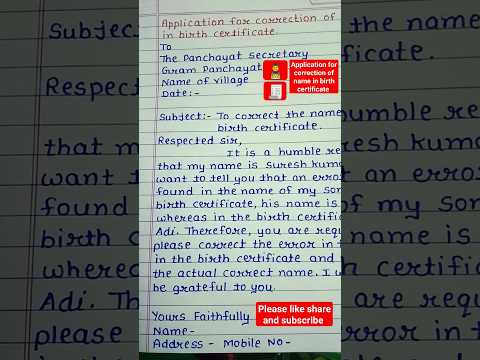 Application for correction of
in birth certificate.
To
The Panchayat Secretary
Gram Panchayat
Name of village
Date:-
Application for
correction of
name in birth
certificate
Subject:- To correct the name
birth certificate.
Respected sir,
It is a humble re
that my name is Suresh kum
want to tell you that an erro
found in the name of my son
birth certificate, his name is
whereas in the birth certific
Adi. Therefore, you are requ
please correct the error in t
in the birth certificate and
the actual correct name. I w
be grateful to you.
Yours Faithfully
Name-
Address - Mobile No-
Please like share
and subscribe
Subject:-
Respect
that my
want to
found
birth c
wherea
Adi. Th
please
the name
ficate.
umble re
resh kum
an erro
of my son
name is
certific
are requ
error in t